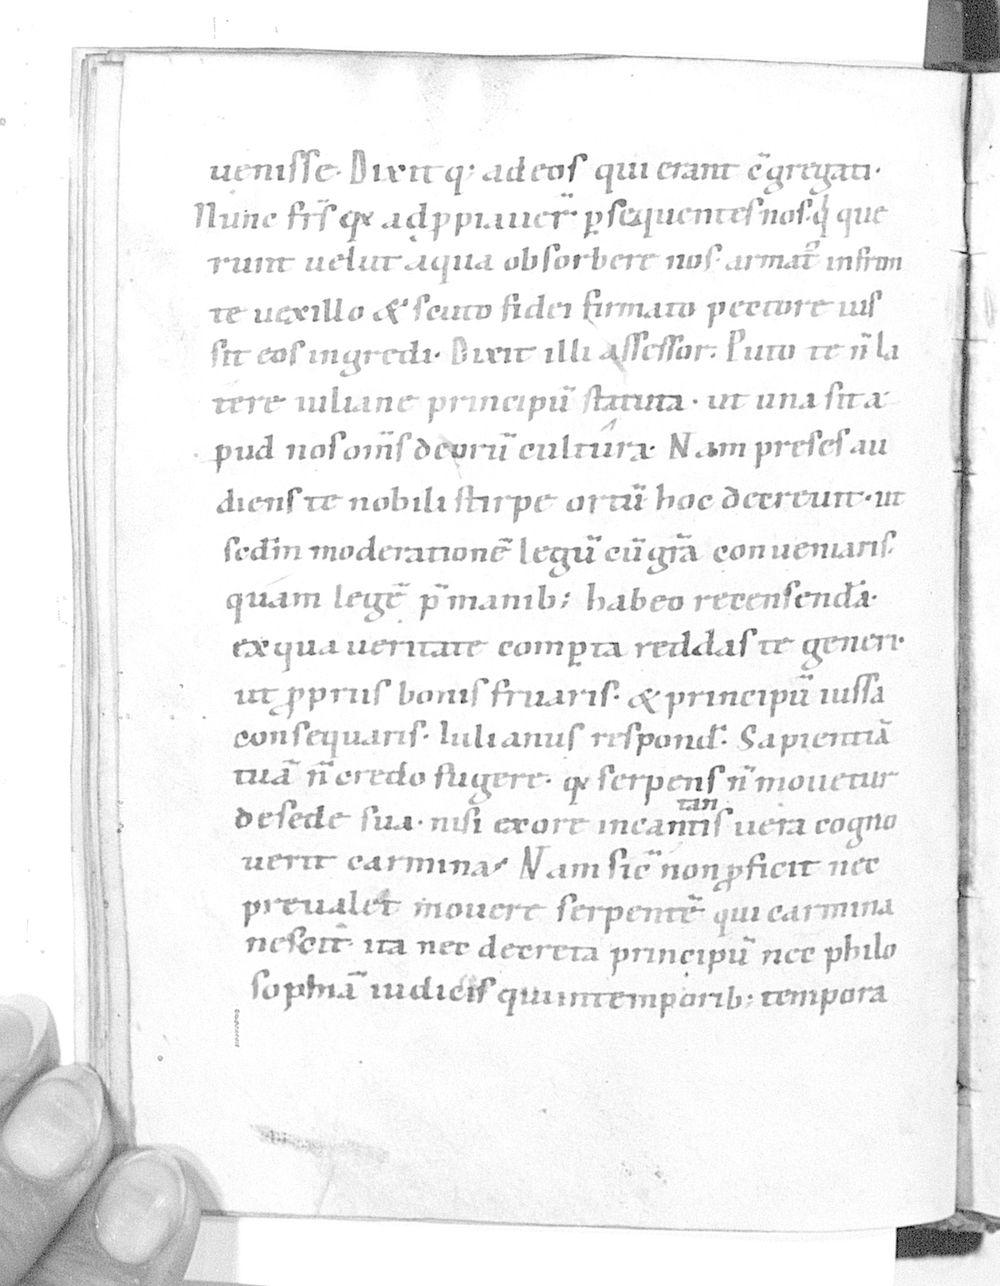 uenisse. Dixit q; ad eos qui erant c̄gregati.
Nunc fr̄s q̨ adp̱piauer̄. ꝑsequentes nos. q̇ que
runt uelut aqua obsorbere nos. armat᷑ in fron
te uexillo & scuto fidei firmato pectore ius
sit eos ingredi. Dixit illi assessor. Puto te n̄ la
tere iuliane principū statuta. ut una sit a
pud nos om̄s deorū cultura. Nam preses au
diens te nobili stirpe ortū hoc decreuit. ut
scd̄m moderationē legū cū gr̄a conueniaris.
quam legē p̄ manib; habeo recensendā.
ex qua ueritate comꝑta reddas te generi.
ut ꝓpriis bonis fruaris. & principū iussa
consequaris. Iulianus respond̄. Sapientiā
tuā n̄ credo fugere. q̨ serpens n̄ mouetur
de sede sua. nisi ex ore incantis uera cogno
tan
uerit carmina. Nam sic̄ non ꝓficit nec
preualet mouere serpentē qui carmina
nescit. ita nec decreta principū nec philo
sophiā iudicis qui in temporib; tempora